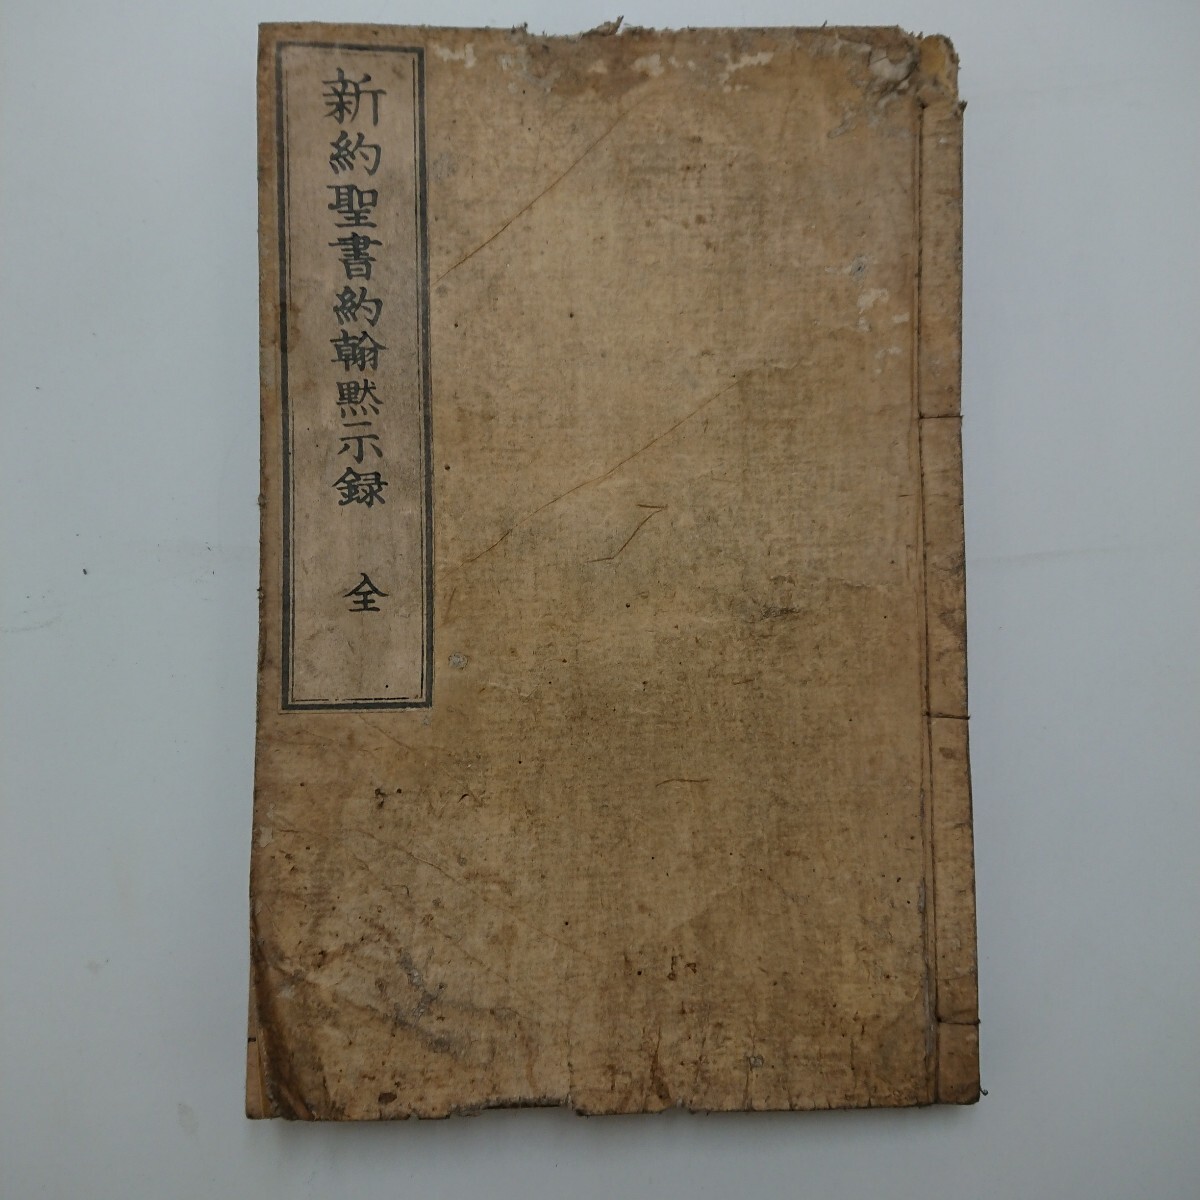 新約聖書約翰黙示録 全